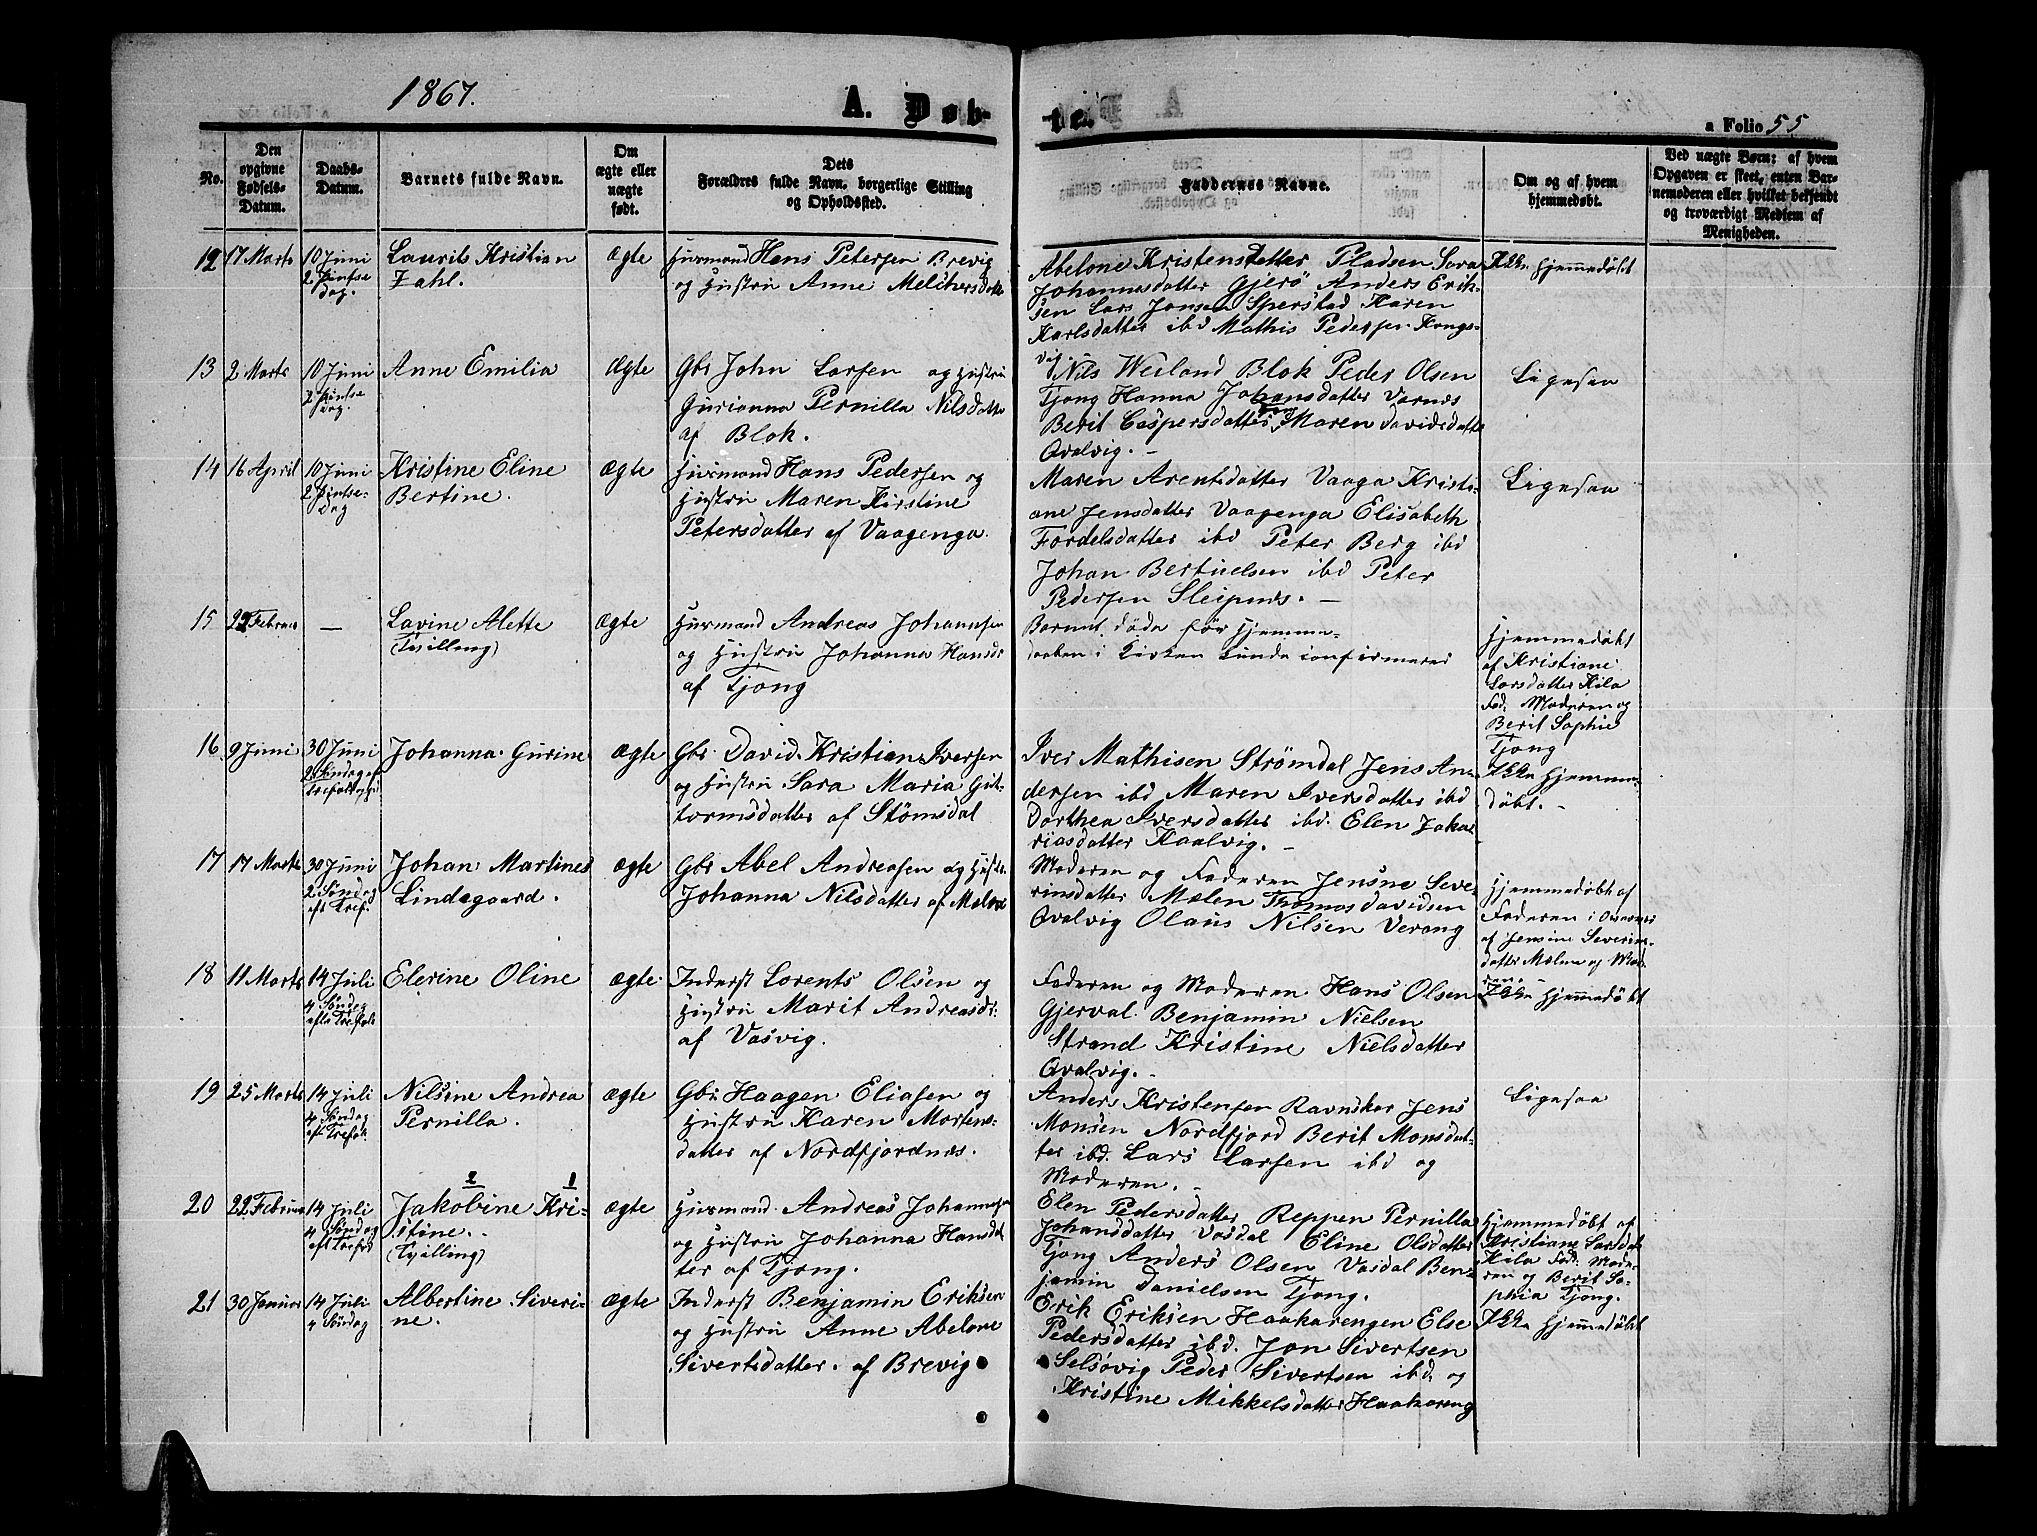 1867.
A. Døb-
te.
a Folio 55
No.
Den
opgivne
Fødsels-
Datum.
Daabs-
Datum.
Barnets fulde Navn.
Om
ægte eller
uægte
født.
Dets
Forældres fulde Navn, borgerlige Stilling
og Opholdssted.
Faddernes Navne.
Om og af hvem
hjemmedøbt.
Ved uægte Børn: af hvem
Opgaven er skeet, enten Bar-
nemoderen eller hvilket bekjendt
og troværdigt Medlem af
Menigheden.
12
17 Marts
10 Juni
2 Pintse
dag.
Laurits Kristian
Zahl.
Ægte
Huusmand Hans Petersen Brevig
og Hustru Anne Melchersdatte
Abelone Kristensdatter Pladsen Sara
Johannesdatter Gjerö Anders Erik-
sen Lars Jonsen Sperstad Karen
Karlsdatter ibd Mathis Pedersen Kongs-
vig.
Ikke Hjemmedøbt
13
2 Marts
10 Juni
2 Pintse
dag.
Anne Emilia
Ægte
Gbr John Larsen og Hustru
Gurianna Pernilla Nilsdatte
af Blok.
Nils Weiland Blok Peder Olsen
Tjong Hanna Johansdatter Varnæs
Berit Caspersdatter Maren Davidsdatte
Qvalvig. -
Ligesaa
14
16 April
10 Juni
2 Pintse-
dag
Kristine Eline
Bertine.
Ægte
Huusmand Hans Pedersen og
Hustru Maren Kirstine
Petersdatter af Vaagenga.
Maren Arentsdatter Vaaga Kristi-
ane Jensdatter Vaagenga Elisabeth
Fordelsdatter ibd Peter Berg ibd
Johan Bertuelsen ibd Peter
Pedersen Sleipnæs. -
Ligesaa
15
22 Februar
-
Lavine Alette
(Tvilling)
Ægte
Huusmand Andreas Johannsen
og Hustru Johanna Hansdr
af Tjong
Barnet döde för Hjemme-
daaben i Kirken kunde confirmeres
Hjemmedøbt
af Kristiane
Larsdatter Kila
Fad. Moderen og
Berit Sophie
Tjong
16
9 Juni
30 Juni
2 Søndag ef
Trefoldighe
Johanna Gurine
Ægte
Gbr David Kristian Iversen
og Hustru Sara Maria Gut-
tormsdatter af Stömsdal
Iver Mathisen Strömdal Jens An-
dersen ibd Maren Iversdatter ibd
Dorthea Iversdatter ibd. Elen Zaka-
riasdatter Kaalvig. -
Ikke Hjemme-
døbt. -
17
17 Marts
30 Juni
2 Søndag
eft Tref.
Johan Martines
Lindegaard.
Ægte
Gbr Abel Andreasen og Hustr.
Johanna Nilsdatter af Melen
Moderen og Faderen Jensine Seve-
rinsdatter Mælen Thomas Davidsen
Qvalvig Olaus Nilsen Verang
Hjemmedøbt af
Faderen i Overvær
af Jensine Severins-
datter Mælen og Mod-
eren -
18
11 Marts
14 Juli
4 Søndag
efte Trefold
Elerine Oline
Ægte
Inderst Lorents Olsen og
Hustru Marit Andreasdr.
af Vasvig.
Faderen og Moderen Hans Olsen
Gjerval Benjamin Nielsen
Strand Kristine Nielsdatter
Qvalvig. -
Ikke Hjemmedøbt
19
25 Marts
14 Juli
4 Søndag
eft Trefol.
Nilsine Andrea
Pernilla.
Ægte
Gbr Haagen Eliasen og
Hustru Karen Mortens-
datter af Nordfjordnæs.
Anders Kristensen Ravnskar Jens
Monsen Nordfjord Berit Monsdat-
ter ibd. Lars Larsen ibd og
Moderen. -
Ligesaa
20
22 Februar
14 Juli
4 Søndag
eft Trefod
2 1
Jakobine Kri-
stine.
(Tvilling)
Ægte
Huusmand Andreas Johannsen
og Hustru Johanna Hansdat
ter af Tjong.
Elen Pedersdatter Reppen Pernilla
Johansdatter Vasdal Eline Olsdatter
Tjong Anders Olsen Vasdal Ben-
jamin Danielsen Tjong.
Hjemmedøbt af
Kristiane Larsdat
Kila Fad: Mode-
ren og Berit So-
phia Tjong.
21
30 Januar
14 Juli
4 Søndag
Albertine Siveri-
ne.
Ægte
Inderst Benjamin Eriksen
og Hustru Anne Abelone
Sivertsdatter. af Brevig
Erik Eriksen Haakarengen Else
Pedersdatter ibd. Jon Sivertsen
Selsövig Peder Sivertsen ibd. og
Kristine Mikkelsdatter Haakareng
Ikke Hjemmedøbt